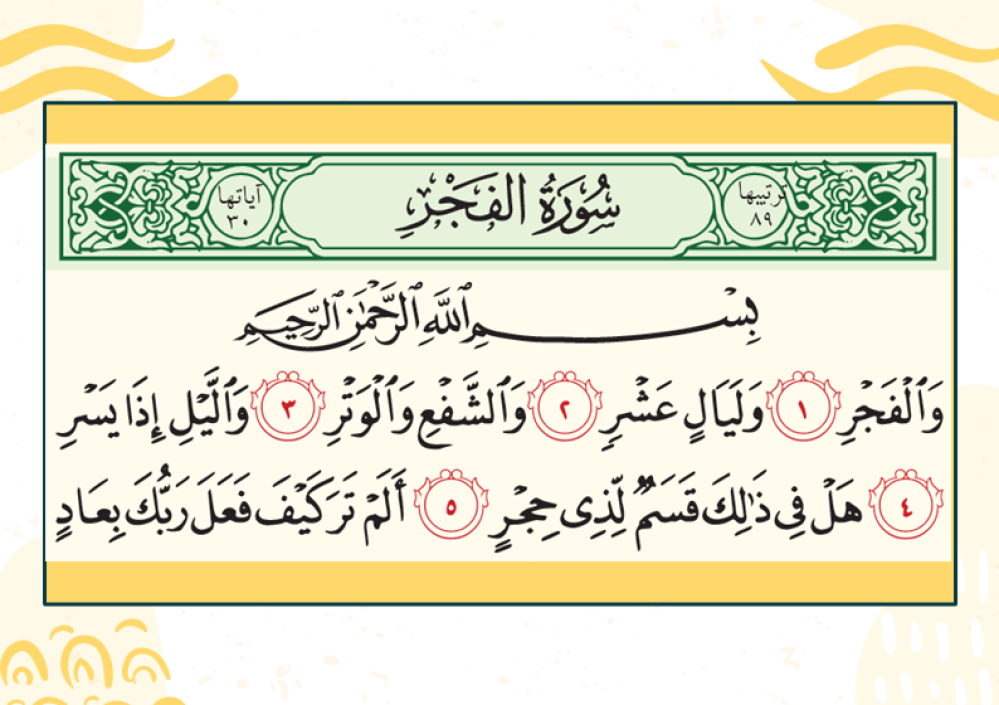 ترتيبها ٨٩ سُورَةُ الفَجْرِ آياتها ٣٠
بِسْمِ ٱللَّهِ ٱلرَّحْمَٰنِ ٱلرَّحِيمِ
وَٱلْفَجْرِ ١ وَلَيَالٍ عَشْرٍ ٢ وَٱلشَّفْعِ وَٱلْوَتْرِ ٣ وَٱلَّيْلِ إِذَا يَسْرِ
٤ هَلْ فِى ذَٰلِكَ قَسَمٌ لِّذِى حِجْرٍ ٥ أَلَمْ تَرَ كَيْفَ فَعَلَ رَبُّكَ بِعَادٍ